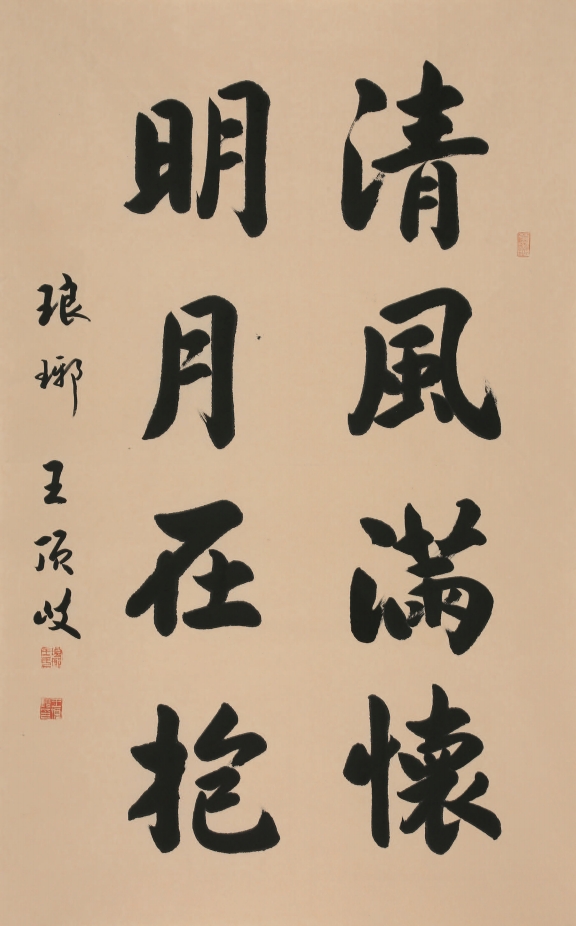 清風滿懷
明月在抱
琅琊王頂岐